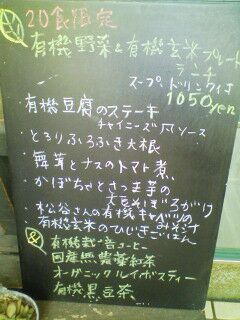 20食限定
有機野菜&有機玄米プレート
ランチ
スープ、ドリンク付
1050yen
・有機豆腐のステーキ
チャイニーズソース
・とろりふろふき大根
・舞茸とナスのトマト煮
・かぼちゃとさつま芋の
大豆そぼろがけ
・松谷さんの有機キャベツのみそ汁
・有機玄米のひじきごはん
&
有機栽培コーヒー
国産無農薬紅茶
オーガニックルイボスティー
有機黒豆茶